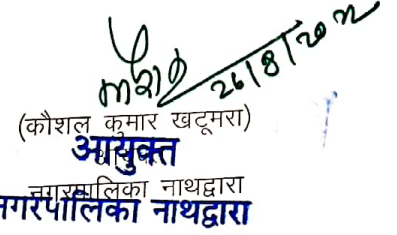 26/8/20
(कौशल कुमार खटूमरा)
आयुक्त
नगरपालिका नाथद्वारा
नगरपालिका नाथद्वारा